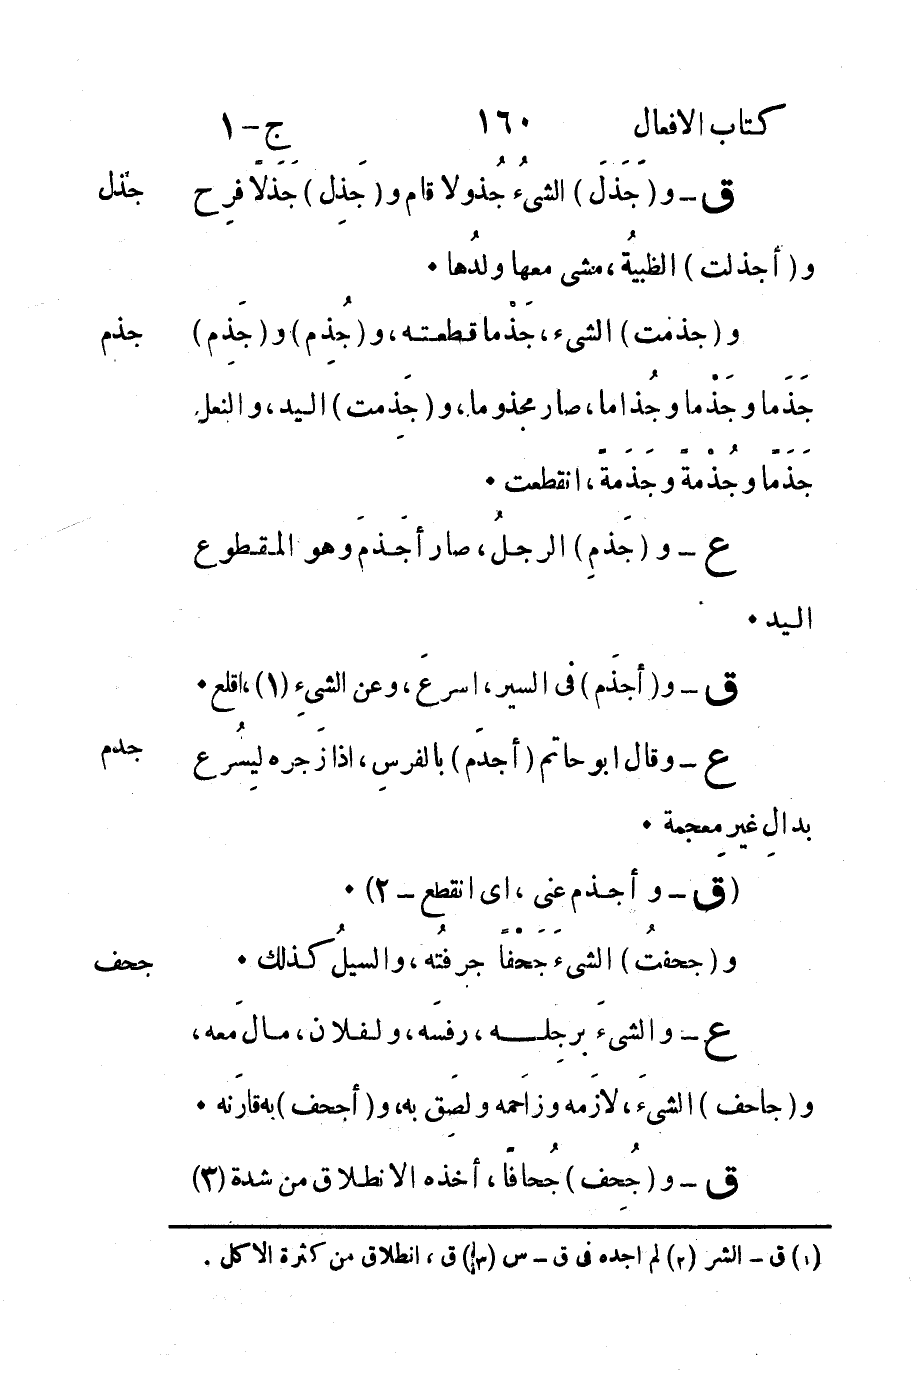 كتاب الافعال ١٦٠ ج-١
ق - و (جَذَلَ) الشىءُ جُذُولا قام و (جَذِل) جَذَلًا فرِح جذل
و (أجذلت) الظبيةُ، مشى معها ولدُها •
و (جذمت) الشىء، جَذْما قطعته، و (جُذِم) و (جَذِم) جذم
جَذَما و جَذْما و جُذاما، صار مجذوما، و (جَذِمت) اليد، والنعل
جَذَمًا و جُذْمةً و جَذَمةً، انقطعت •
ع - و (جَذمِ) الرجلُ، صار أجَذمَ وهو المقطوع
اليد •
ق - و (أجذَم) فى السير، اسرعَ، وعن الشىءِ (١)، اقلع •
ع - وقال ابو حاتم (أجدَم) بالفرسِ، اذا زَجره ليُسرِع جدم
بدالِ غيرِ معجمة •
(ق - و أجذم عنى، اى انقطع - ٢) •
و (جحفتُ) الشىءَ جَحْفًا جرفتُه، والسيلُ كذلك • جحف
ع - والشىءَ برِجلِــه، رفسَه، ولفلان، مالَ معه،
و (جاحف) الشىءَ، لازمَه وزاحَمه ولصِق به، و (أجحف) به قارَنه •
ق - و (جُحِف) جُحافًا، أخذه الانطلاق من شدة (٣)
(١) ق - الشر (٢) لم اجده فى ق - س (٣) ق، انطلاق من كثرة الاكل .